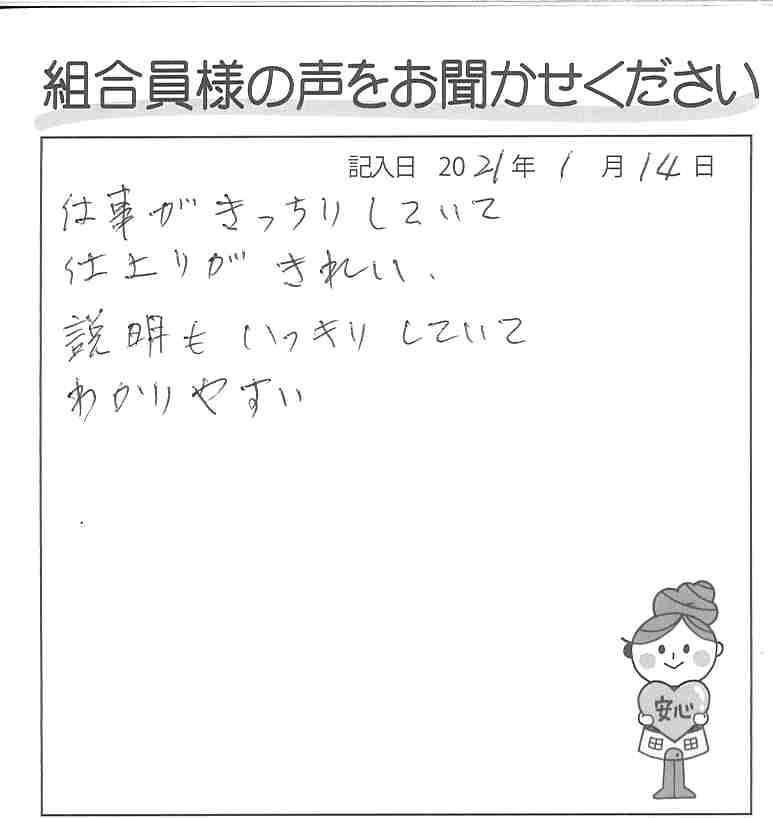 組合員様の声をお聞かせください
記入日 2021年 1月 14日
仕事がきっちりしていて
仕上りが きれい、
説明も いっきりしていて
わかりやすい
安心